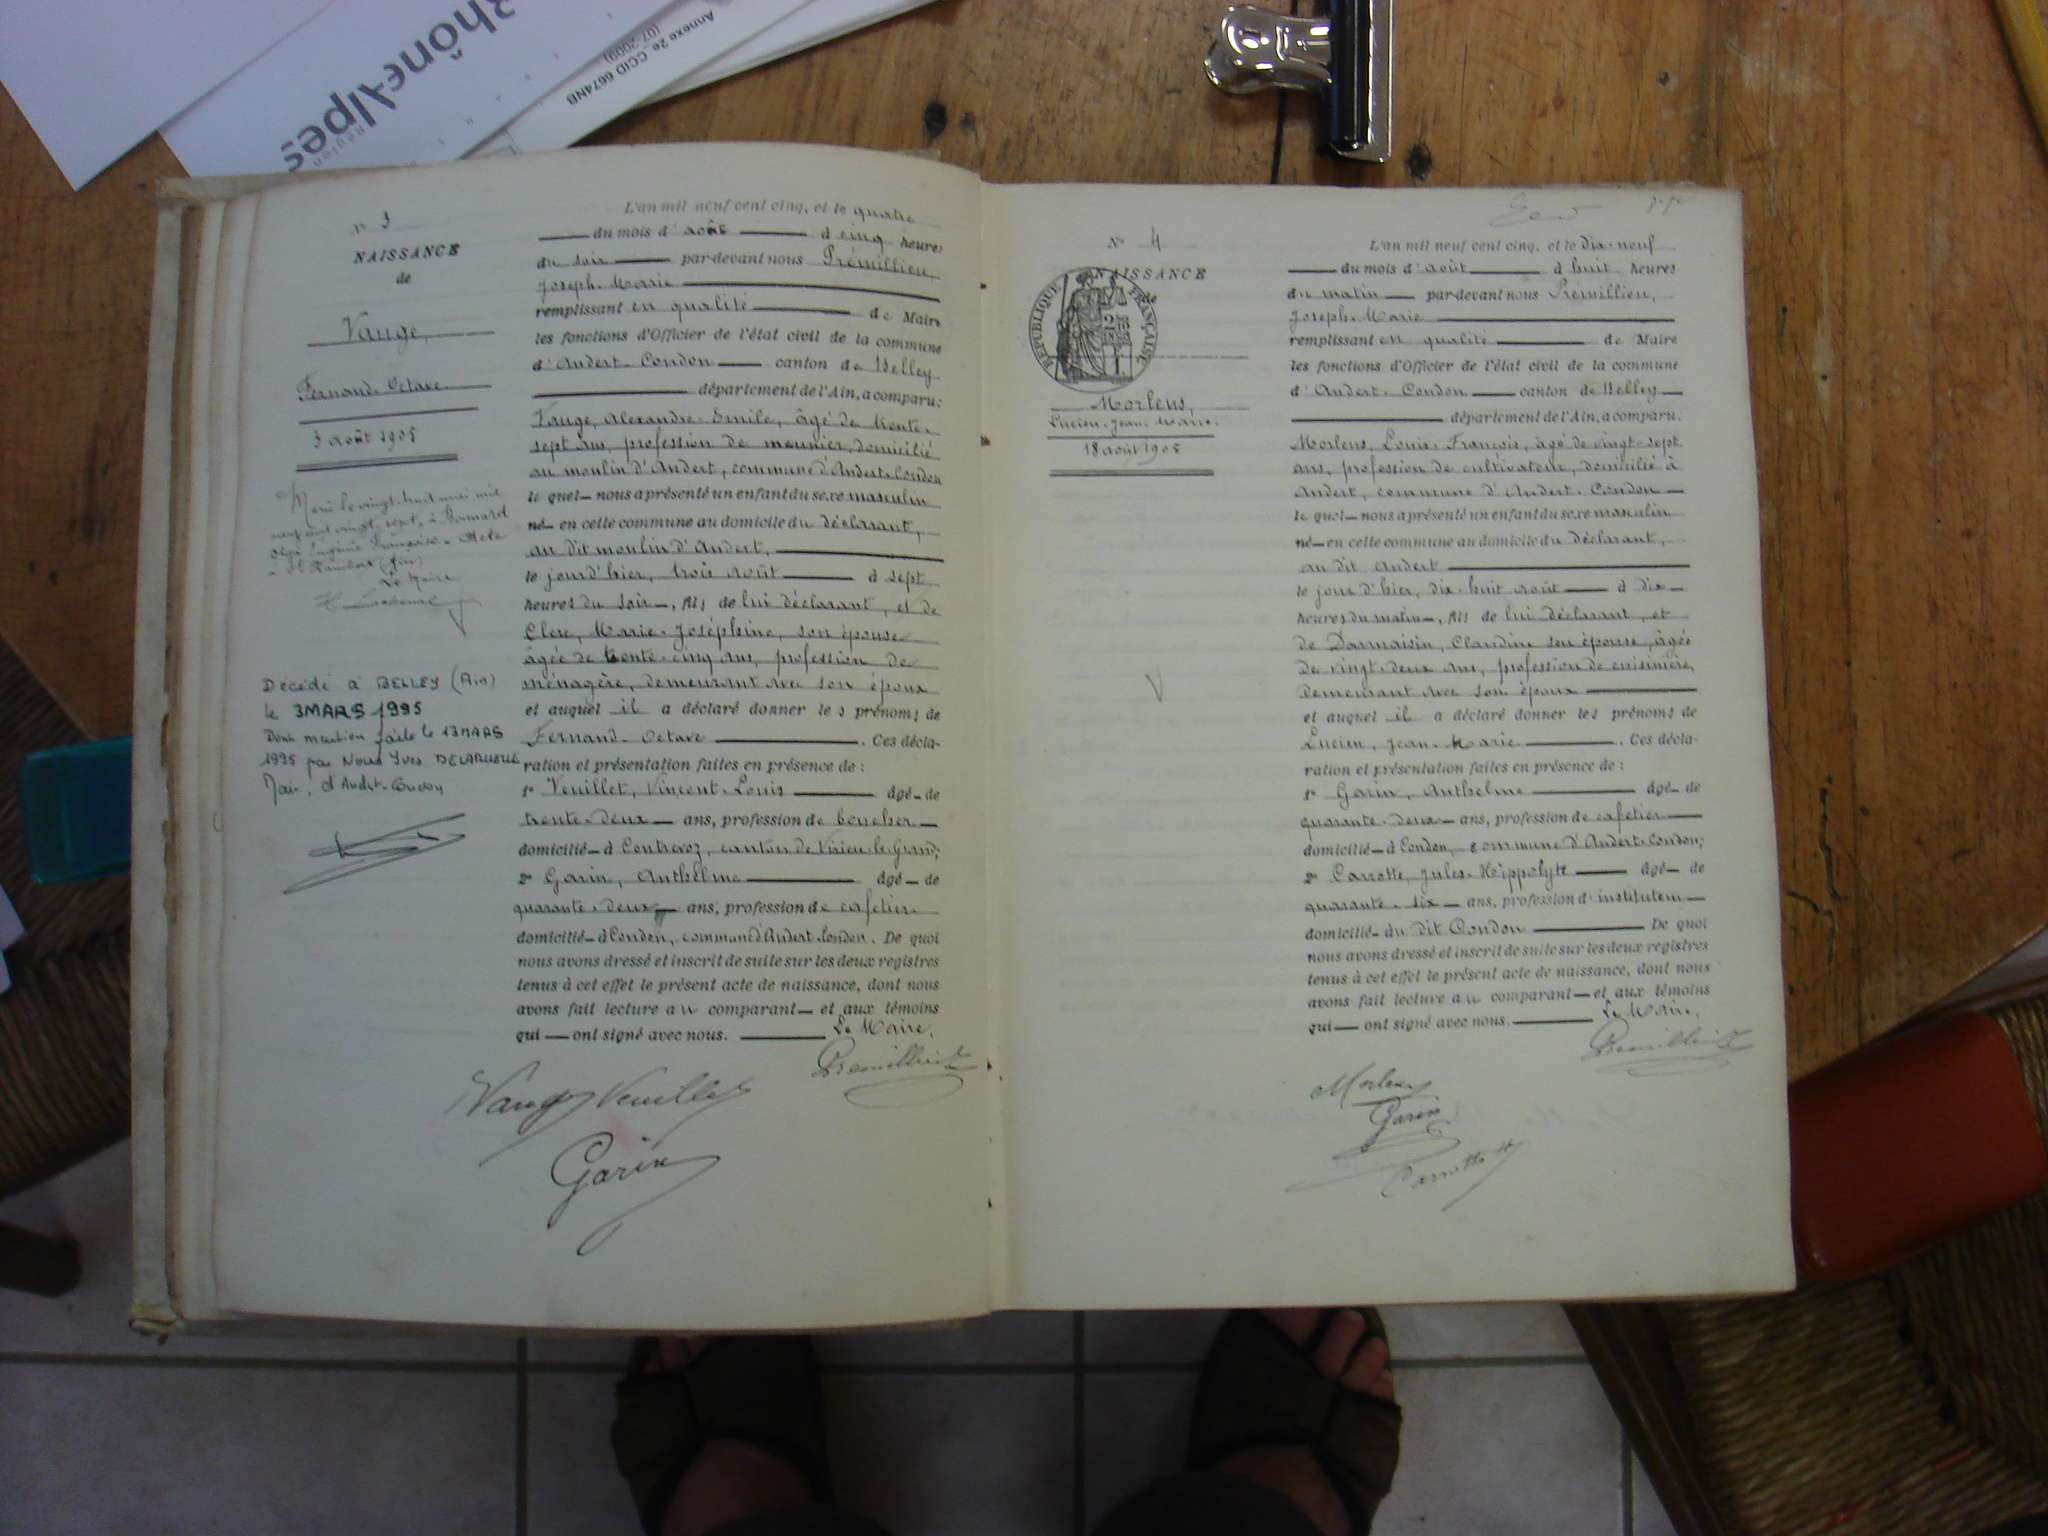 Rhône-Alpes
Région
Annexe 2e CCID 6674NB
(07-2009)
N° 3
NAISSANCE
de
Vauge,
Fernand-Octave
3 août 1905
Marié le vingt-huit mai mil
neuf cent vingt-sept, à
Olga Eugénie Françoise
à St Rambert (Ain)
Le Maire
Décédé à BELLEY (Ain)
le 3 MARS 1995
Dont mention faite le 13 MARS
1995 par Nous Yves DELARUELLE
Maire d'Andert-Condon
L'an mil neuf cent cinq, et le quatre
du mois d'août à cinq heures
du soir par-devant nous Prémillieu,
Joseph-Marie
remplissant en qualité de Maire
les fonctions d'Officier de l'état civil de la commune
d'Andert-Condon canton de Belley
département de l'Ain, a comparu:
Vauge, Alexandre-Emile, âgé de trente-
sept ans, profession de meunier, domicilié
au moulin d'Andert, commune d'Andert-Condon
lequel nous a présenté un enfant du sexe masculin
né en cette commune au domicile du déclarant,
au dit moulin d'Andert,
le jour d'hier, trois août à sept
heures du soir, fils de lui déclarant, et de
Clerc, Marie-Joséphine, son épouse
âgée de trente-cinq ans, profession de
ménagère, demeurant avec son époux
et auquel il a déclaré donner les prénoms de
Fernand-Octave. Ces décla-
ration et présentation faites en présence de :
1° Veuillet, Vincent-Louis âgé de
trente-deux ans, profession de boucher
domicilié à Contrevoz, canton de Virieu-le-Grand;
2° Garin, Anthelme âgé de
quarante-deux ans, profession de cafetier
domicilié à Condon, commune d'Andert-Condon. De quoi
nous avons dressé et inscrit de suite sur les deux registres
tenus à cet effet le présent acte de naissance, dont nous
avons fait lecture au comparant et aux témoins
qui ont signé avec nous. Le Maire,
Prémillieu
Vauge Veuillet
Garin
N° 4
NAISSANCE
de
RÉPUBLIQUE FRANÇAISE
Morlens,
Lucien-Jean-Marie.
18 août 1905
L'an mil neuf cent cinq, et le dix-neuf
du mois d'août à huit heures
du matin par-devant nous Prémillieu,
Joseph-Marie
remplissant en qualité de Maire
les fonctions d'Officier de l'état civil de la commune
d'Andert-Condon canton de Belley
département de l'Ain, a comparu.
Morlens, Louis-François, âgé de vingt-sept
ans, profession de cultivateur, domicilié à
Andert, commune d'Andert-Condon
lequel nous a présenté un enfant du sexe masculin
né en cette commune au domicile du déclarant,
au dit Andert
le jour d'hier, dix-huit août à dix
heures du matin, fils de lui déclarant, et
de Darmaisin, Claudine son épouse, âgée
de vingt-deux ans, profession de cuisinière,
demeurant avec son époux
et auquel il a déclaré donner les prénoms de
Lucien, Jean-Marie. Ces décla-
ration et présentation faites en présence de :
1° Garin, Anthelme âgé de
quarante-deux ans, profession de cafetier
domicilié à Condon, commune d'Andert-Condon;
2° Carrotte, Jules-Hippolyte âgé de
quarante-six ans, profession d'instituteur
domicilié au dit Condon De quoi
nous avons dressé et inscrit de suite sur les deux registres
tenus à cet effet le présent acte de naissance, dont nous
avons fait lecture au comparant et aux témoins
qui ont signé avec nous. Le Maire,
Prémillieu
Morlens
Garin
Carrotte